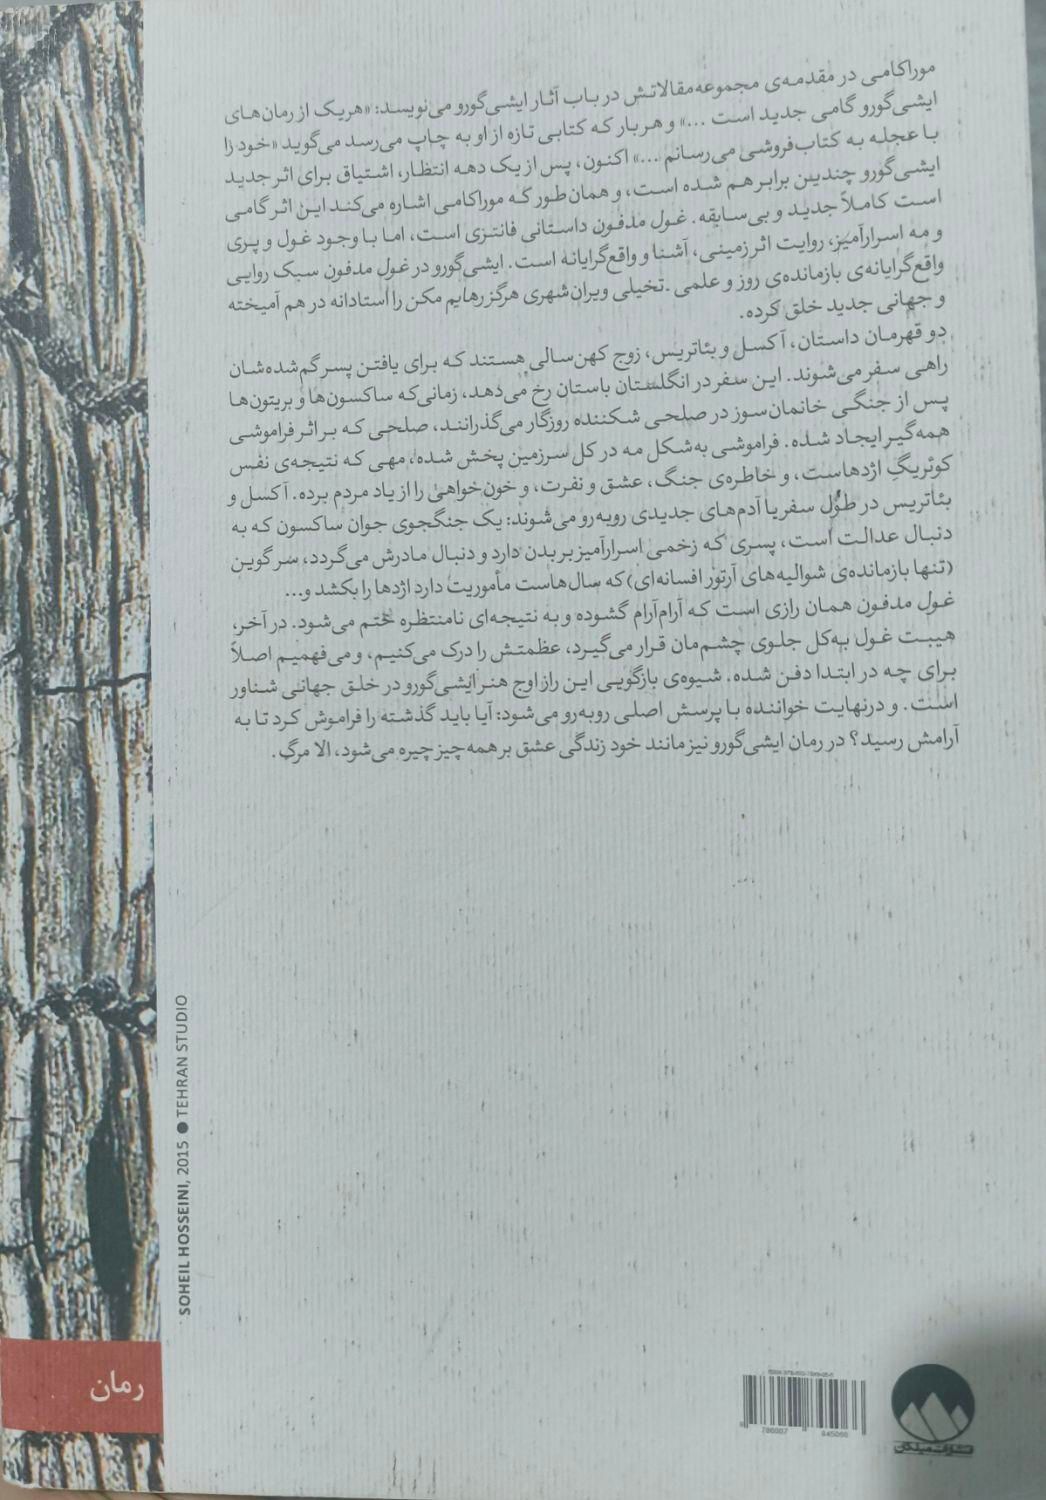 موراکامی در مقدمه‌ی مجموعه‌مقالاتش در باب آثار ایشی‌گورو می‌نویسد: «هریک از رمان‌های
ایشی‌گورو گامی جدید است ...» و هر بار که کتابی تازه از او به چاپ می‌رسد می‌گوید «خود را
با عجله به کتاب‌فروشی می‌رسانم ...» اکنون، پس از یک دهه انتظار، اشتیاق برای اثر جدید
ایشی‌گورو چندین برابر هم شده است، و همان‌طور که موراکامی اشاره می‌کند این اثر گامی
است کاملاً جدید و بی‌سابقه. غول مدفون داستانی فانتزی است، اما با وجود غول و پری
و مه اسرارآمیز، روایت اثر زمینی، آشنا و واقع‌گرایانه است. ایشی‌گورو در غول مدفون سبک روایی
واقع‌گرایانه‌ی بازمانده‌ی روز و علمی.تخیلی ویران‌شهری هرگز رهایم مکن را استادانه در هم آمیخته
و جهانی جدید خلق کرده.
دو قهرمان داستان، آکسل و بئاتریس، زوج کهن‌سالی هستند که برای یافتن پسر گم‌شده‌شان
راهی سفر می‌شوند. این سفر در انگلستان باستان رخ می‌دهد، زمانی‌که ساکسون‌ها و بریتون‌ها
پس از جنگی خانمان‌سوز در صلحی شکننده روزگار می‌گذرانند، صلحی که بر اثر فراموشی
همه‌گیر ایجاد شده. فراموشی به‌شکل مه در کل سرزمین پخش شده، مهی که نتیجه‌ی نفس
کوئریگِ اژدهاست، و خاطره‌ی جنگ، عشق و نفرت، و خون‌خواهی را از یاد مردم برده. آکسل و
بئاتریس در طول سفر با آدم‌های جدیدی روبه‌رو می‌شوند: یک جنگجوی جوان ساکسون که به
دنبال عدالت است، پسری که زخمی اسرارآمیز بر بدن دارد و دنبال مادرش می‌گردد، سر گوین
(تنها بازمانده‌ی شوالیه‌های آرتور افسانه‌ای) که سال‌هاست مأموریت دارد اژدها را بکشد و...
غول مدفون همان رازی است که آرام‌آرام گشوده و به نتیجه‌ای نامنتظره ختم می‌شود. در آخر،
هیبت غول به‌کل جلوی چشم‌مان قرار می‌گیرد، عظمتش را درک می‌کنیم، و می‌فهمیم اصلاً
برای چه در ابتدا دفن شده. شیوه‌ی بازگویی این راز اوج هنر ایشی‌گورو در خلق جهانی شناور
است. و درنهایت خواننده با پرسش اصلی روبه‌رو می‌شود: آیا باید گذشته را فراموش کرد تا به
آرامش رسید؟ در رمان ایشی‌گورو نیز مانند خود زندگی عشق بر همه‌چیز چیره می‌شود، الا مرگ.
SOHEIL HOSSEINI, 2015 ● TEHRAN STUDIO
رمان
انتشارات میلکان